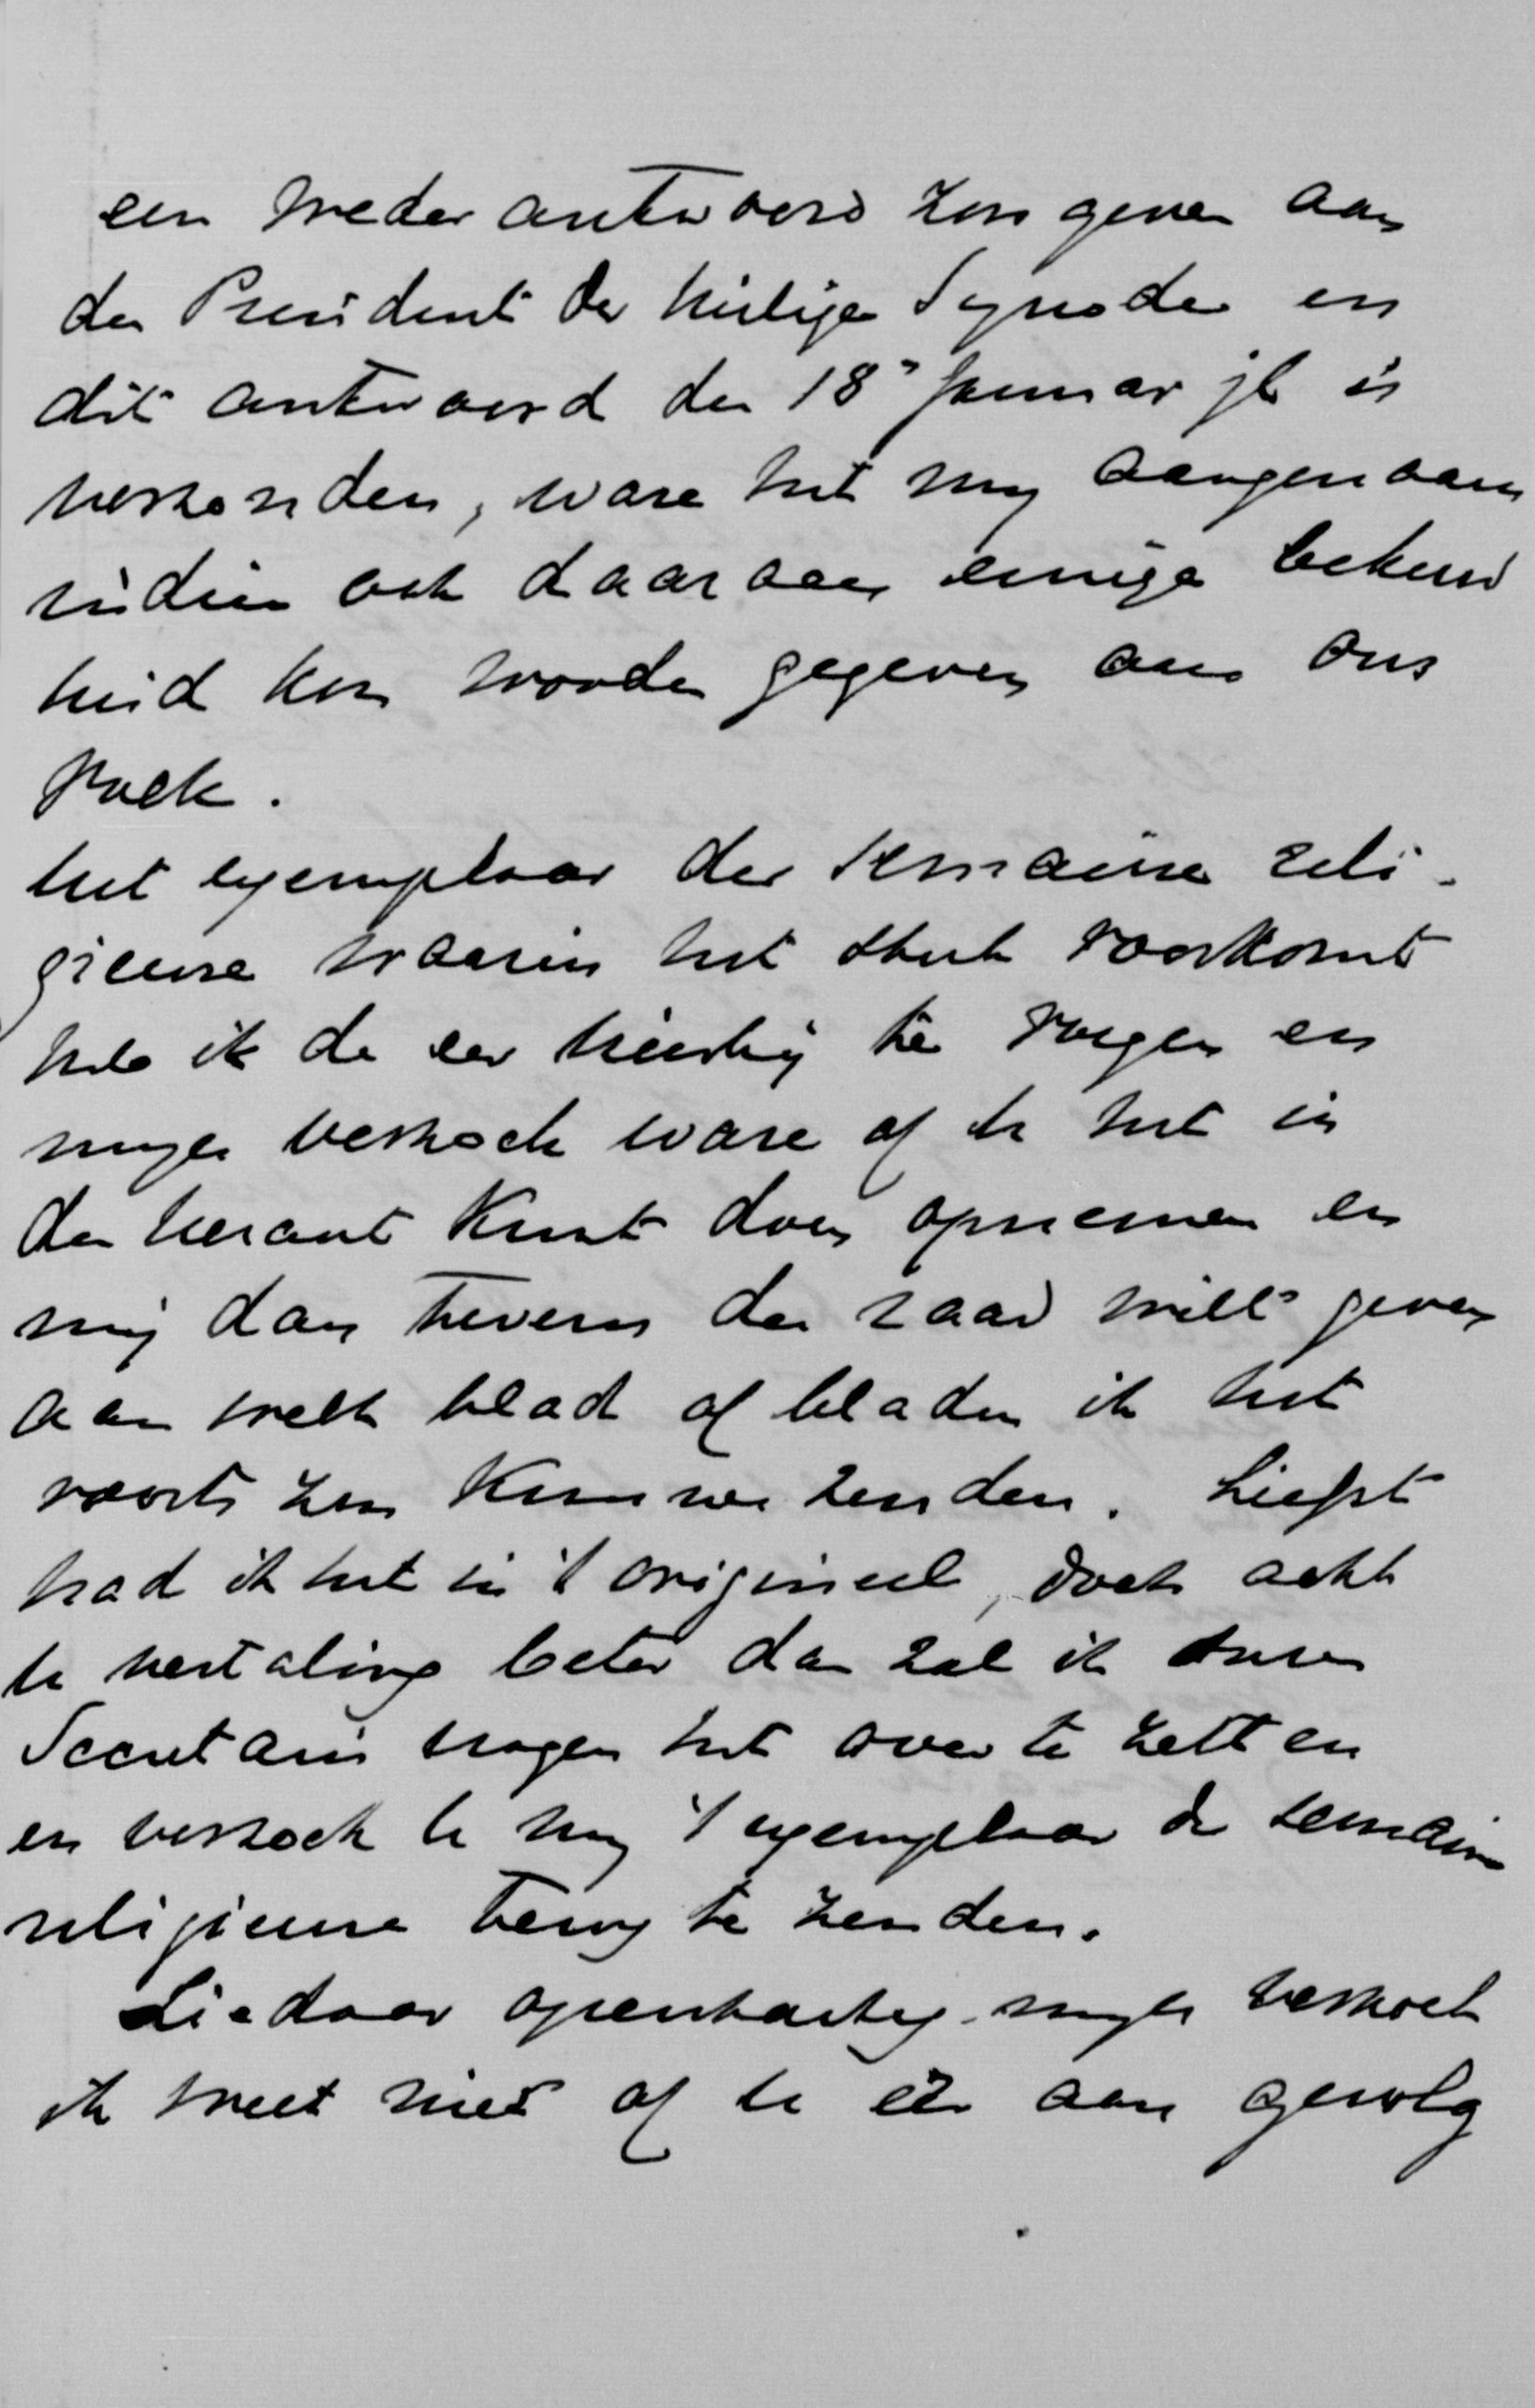 een weder antwoord zou geven aan
den President der heilige Synode en
dit antwoord den 18n Januar jl is
verzonden, ware het mij aangenaam
indien ook daaraan eenige bekend
heid kon worden gegeven aan ons
volk.
het exemplaar der Semaine reli-
gieuse waarin het stuk voorkomt
heb ik de eer hierbij te voegen en
mijn verzoek ware of U het in
den heraut kunt doen opnemen en
mij dan tevens den raad wilt geven
aan welk blad of bladen ik het
voorts zou kunnen zenden. Liefst
had ik het in 't origineel, doch acht
U vertaling beter dan zal ik onzen
Secretaris vragen het over te zetten
en verzoek U mij 't exemplaar de semaine
religieuse terug te zenden.
Ziedaar openhartig mijn verzoek
ik weet niet of U er aan gevolg